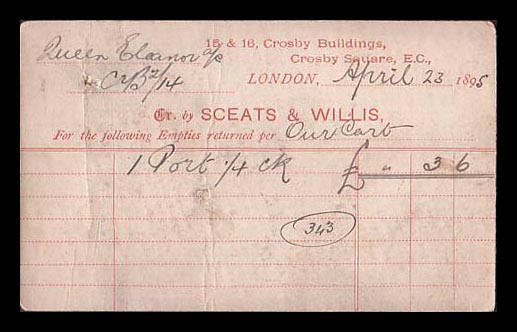 Queen Eleanor a/c 15 & 16, Crosby Buildings,
Crosby Square, E.C.,
LONDON, April 23 1895
Cr. by SCEATS & WILLIS,
For the following Empties returned per Our Cart
1 Port 1/4 ck £ " 3 6
343